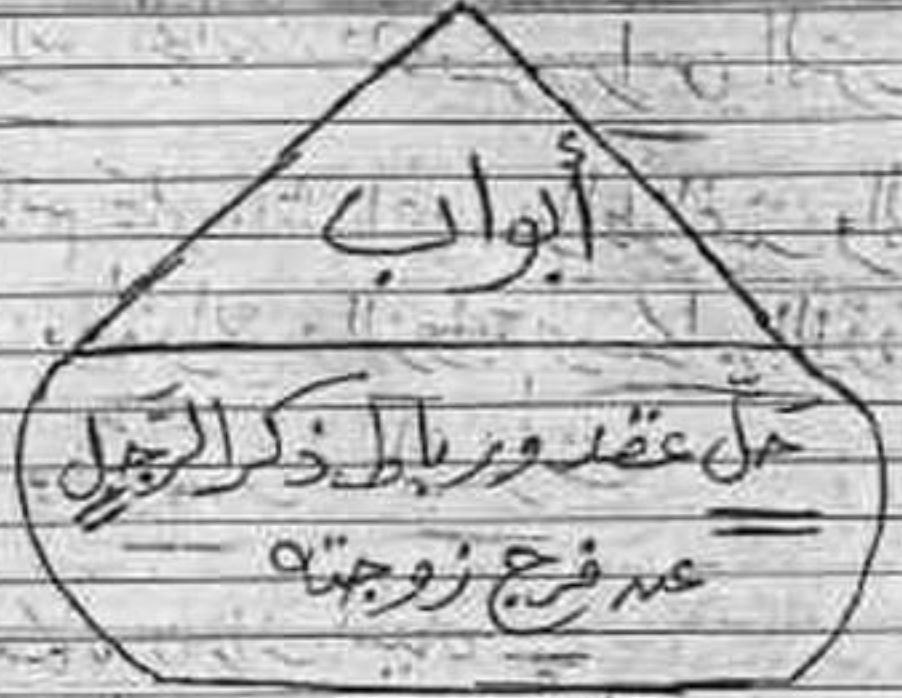 أبواب
حلّ عقد ورباط ذكر الرّجل
عن فرج زوجته